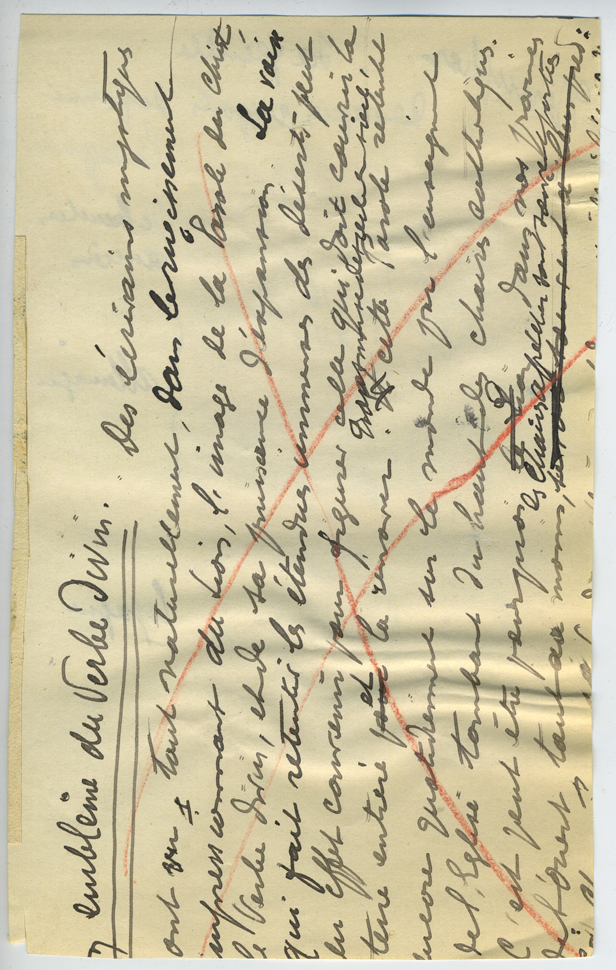 7 emblème du Verbe Divin. Des écrivains mystiques
ont vu tout naturellement, dans le rugissement
impressionnant du lion, l'image de la Parole du Christ
le Verbe divin, et de sa puissance d'expansion. La voix
qui fait retentir les étendues immenses des déserts peut
en effet convenir pour figurer celle qui doit courir la
terre entière et la rénover. cette Parole retentit
encore quotidiennement sur le monde par l'enseignement
de l'Eglise tombant du haut des chaires authentiques.
C'est peut être pourquoi dans nos provinces
de l'Ouest tout au moins,